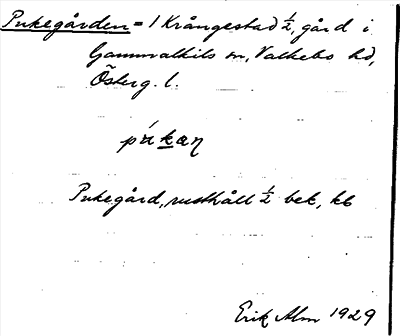 Pukegården = 1 Krångestad ½, gård i
Gammalkils sn, Valkebo hd,
Österg. l.
pukæn
Pukegård, rusthåll ½ bek, kb
Erik Alm 1929